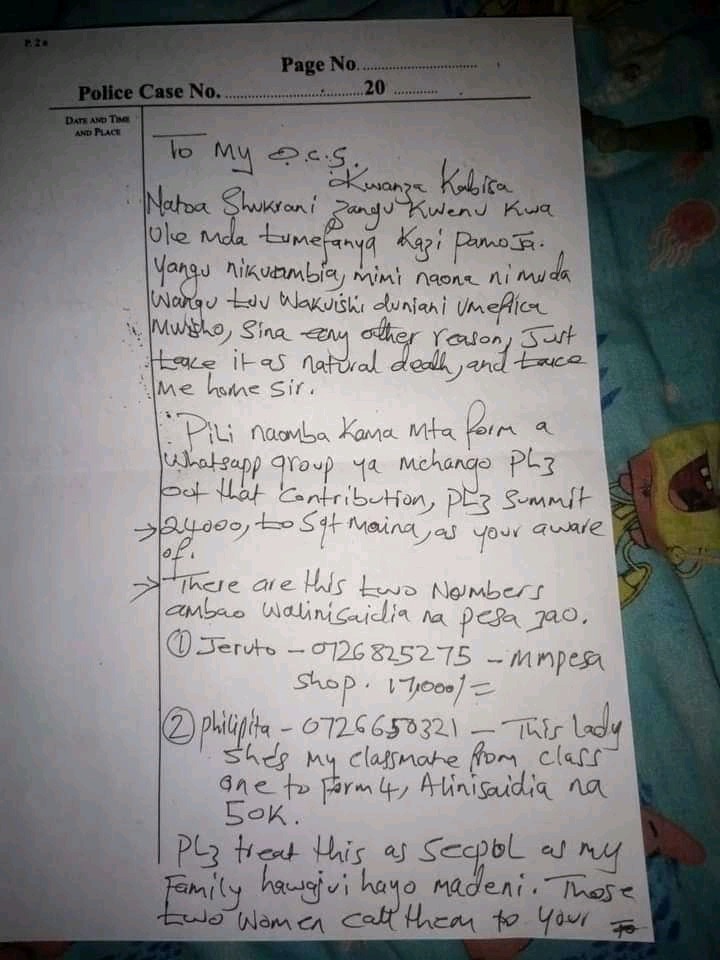 P. 2a
Page No.
Police Case No. 20
DATE AND TIME
AND PLACE
To My O.C.S.
Kwanza Kabisa
Natoa Shukrani Zangu Kwenu Kwa
Ule Mda tumefanya Kazi Pamoja.
Yangu nikuwambia, mimi naona ni muda
Wangu tuu Wakuishi duniani Umefica
Mwisho, Sina eny other reason, Just
take it as natural death, and take
Me home Sir.
Pili naomba Kama Mta form a
Whatsapp group ya mchango PLz
out that Contribution, PLz Summit
→ 24000, to Sgt Maina, as your aware
of.
→ There are this two Numbers
ambao Walinisaidia na pesa zao.
① Jeruto - 0726825275 - Mmpesa
Shop. 17,000/=
② Philipita - 0726650321 - This lady
She's My Classmate from Class
one to Form 4, Alinisaidia na
50K.
PLz treat this as Secpol as my
Family hawajui hayo madeni. Those
two Women call them to Your